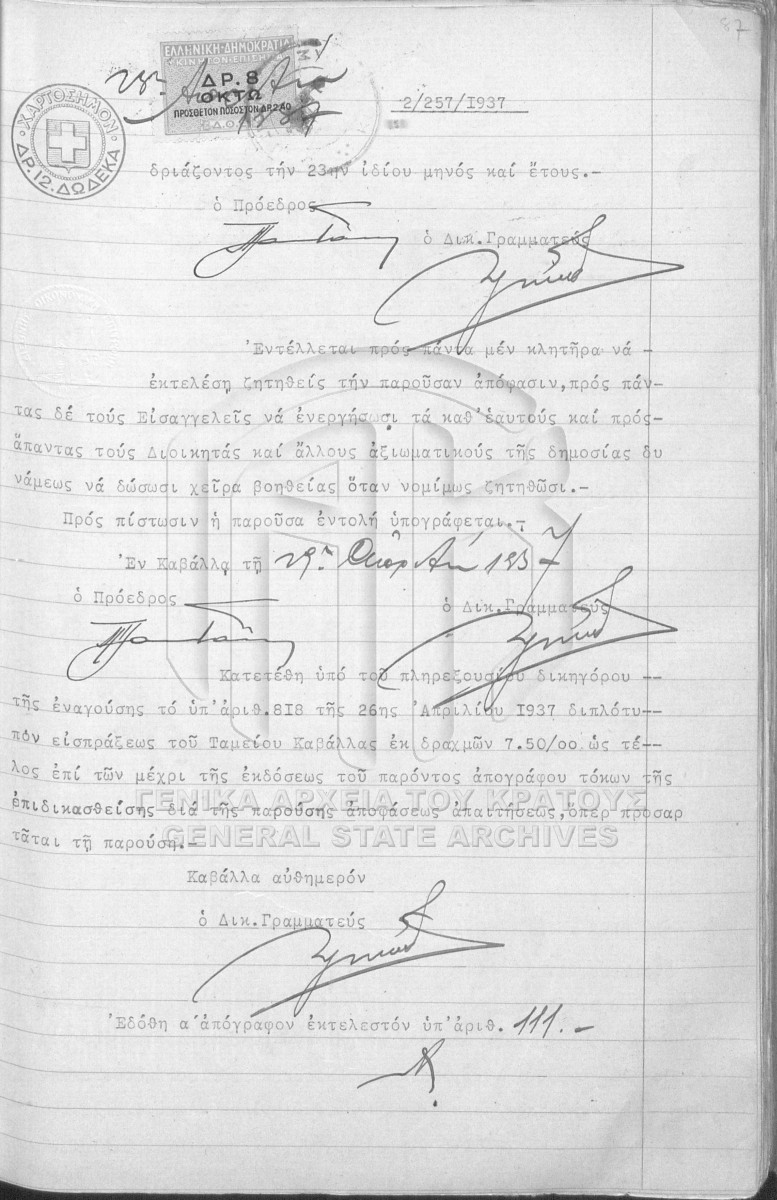 87
ΕΛΛΗΝΙΚΗ ΔΗΜΟΚΡΑΤΙΑ
ΚΙΝΗΤΟΝ ΕΠΙΣΗΜΑ
ΔΡ. 8
ΟΚΤΩ
ΠΡΟΣΘΕΤΟΝ ΠΟΣΟΣΤΟΝ ΔΡ 2.40
ΧΑΡΤΟΣΗΜΟΝ
ΔΡ. 12. ΔΩΔΕΚΑ
2/257/1937
δριάζοντος τήν 23ην ἰδίου μηνός καί ἔτους.-
ὁ Πρόεδρος
ὁ Δικ.Γραμματεύς
Ἐντέλλεται πρός πάντα μέν κλητῆρα νά -
ἐκτελέση ζητηθείς τήν παροῦσαν ἀπόφασιν,πρός πάν-
τας δέ τούς Εἰσαγγελεῖς νά ἐνεργήσωσι τά καθ'ἑαυτούς καί πρός-
ἅπαντας τούς Διοικητάς καί ἄλλους ἀξιωματικούς τῆς δημοσίας δυ
νάμεως νά δώσωσι χεῖρα βοηθείας ὅταν νομίμως ζητηθῶσι.-
Πρός πίστωσιν ἡ παροῦσα ἐντολή ὑπογράφεται.-
Ἐν Καβάλλᾳ τῇ 29ῃ 1937
ὁ Πρόεδρος
ὁ Δικ.Γραμματεύς
Κατετέθη ὑπό τοῦ πληρεξουσίου δικηγόρου --
τῆς ἐναγούσης τό ὑπ'ἀριθ.818 τῆς 26ης Ἀπριλίου 1937 διπλότυ--
πον εἰσπράξεως τοῦ Ταμείου Καβάλλας ἐκ δραχμῶν 7.50/οο ὡς τέ-
λος ἐπί τῶν μέχρι τῆς ἐκδόσεως τοῦ παρόντος ἀπογράφου τόκων τῆς
ἐπιδικασθείσης διά τῆς παρούσης ἀποφάσεως ἀπαιτήσεως,ὅπερ προσαρ
τᾶται τῇ παρούσῃ.-
ΓΕΝΙΚΑ ΑΡΧΕΙΑ ΤΟΥ ΚΡΑΤΟΥΣ
GENERAL STATE ARCHIVES
Καβάλλα αὐθημερόν
ὁ Δικ.Γραμματεύς
Ἐδόθη α΄ἀπόγραφον ἐκτελεστόν ὑπ'ἀριθ. 111.-